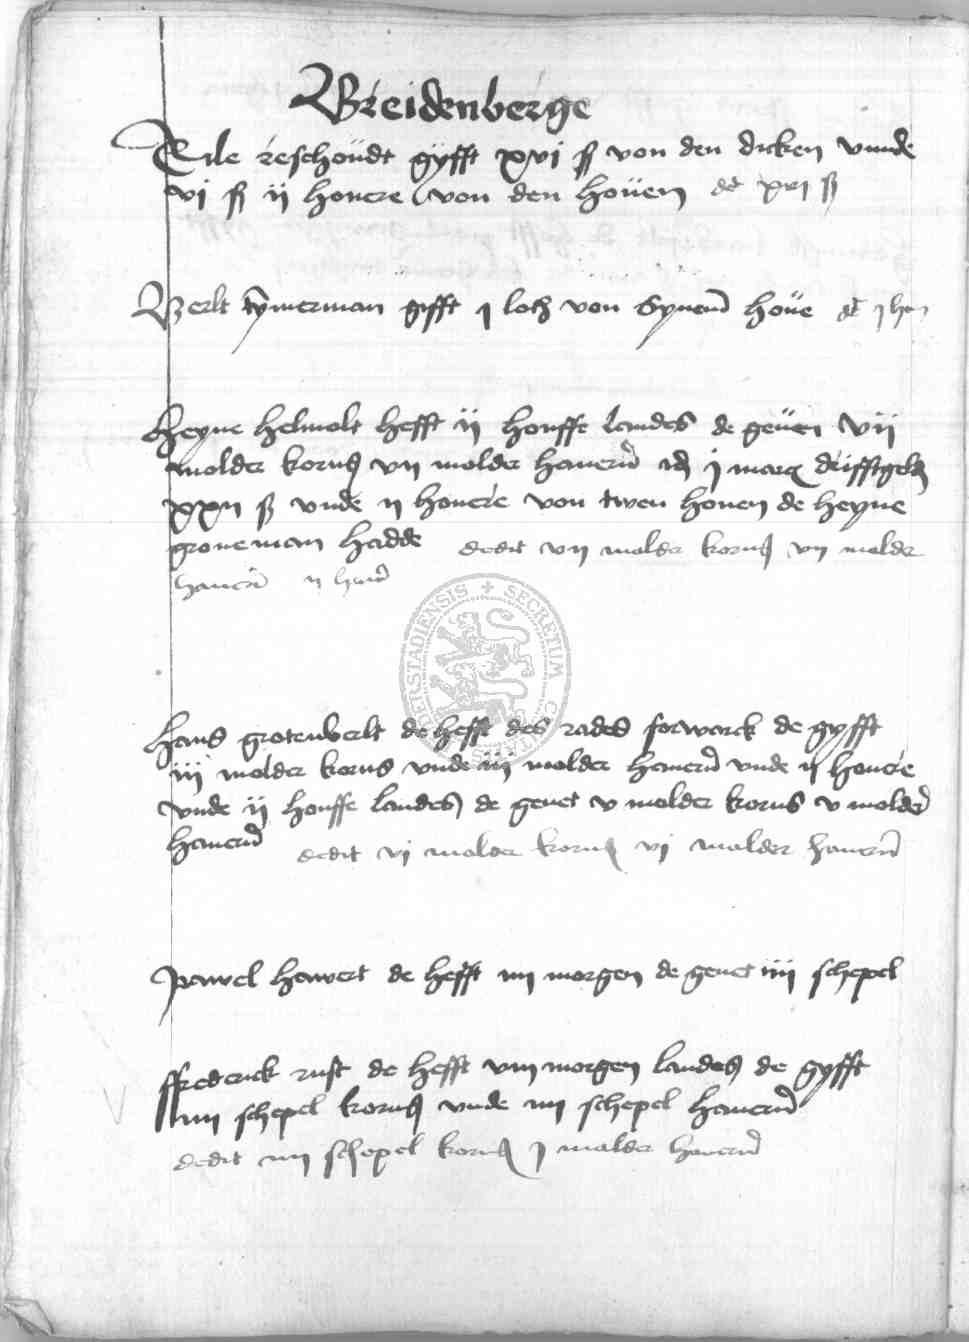 Breidenberge
Tile reschoudt gyfft xvi ß von den dicken vnnde
vi ß ij honere von den houen dt xvi ß
Berlt tymerman gifft j loth von synem houe dt j hon
Heyne helmolt hefft ij houffe landes de geuen vij
molder korns vij molder hauern j marg drifftgelt
xxij ß vnde ij honere von twen houen de heyne
groneman hadde dedit vij molder korns vij molder
hauern ij honer
Hans grotenberlt de hefft des rades forwerck de gyfft
iij molder korns vnde iij molder hauern vnde ij honere
vnde ij houffe landes de geuet v molder korns v molder
hauern dedit vi molder korns vi molder hauern
Pawel hawert de hefft iiij morgen de geuet iiij schepel
ffrederick rust de hefft viij morgen landes de gyfft
iiij schepel korns vnde iiij schepel hauern
dedit iiij schepel korns j molder hauern
SECRETUM